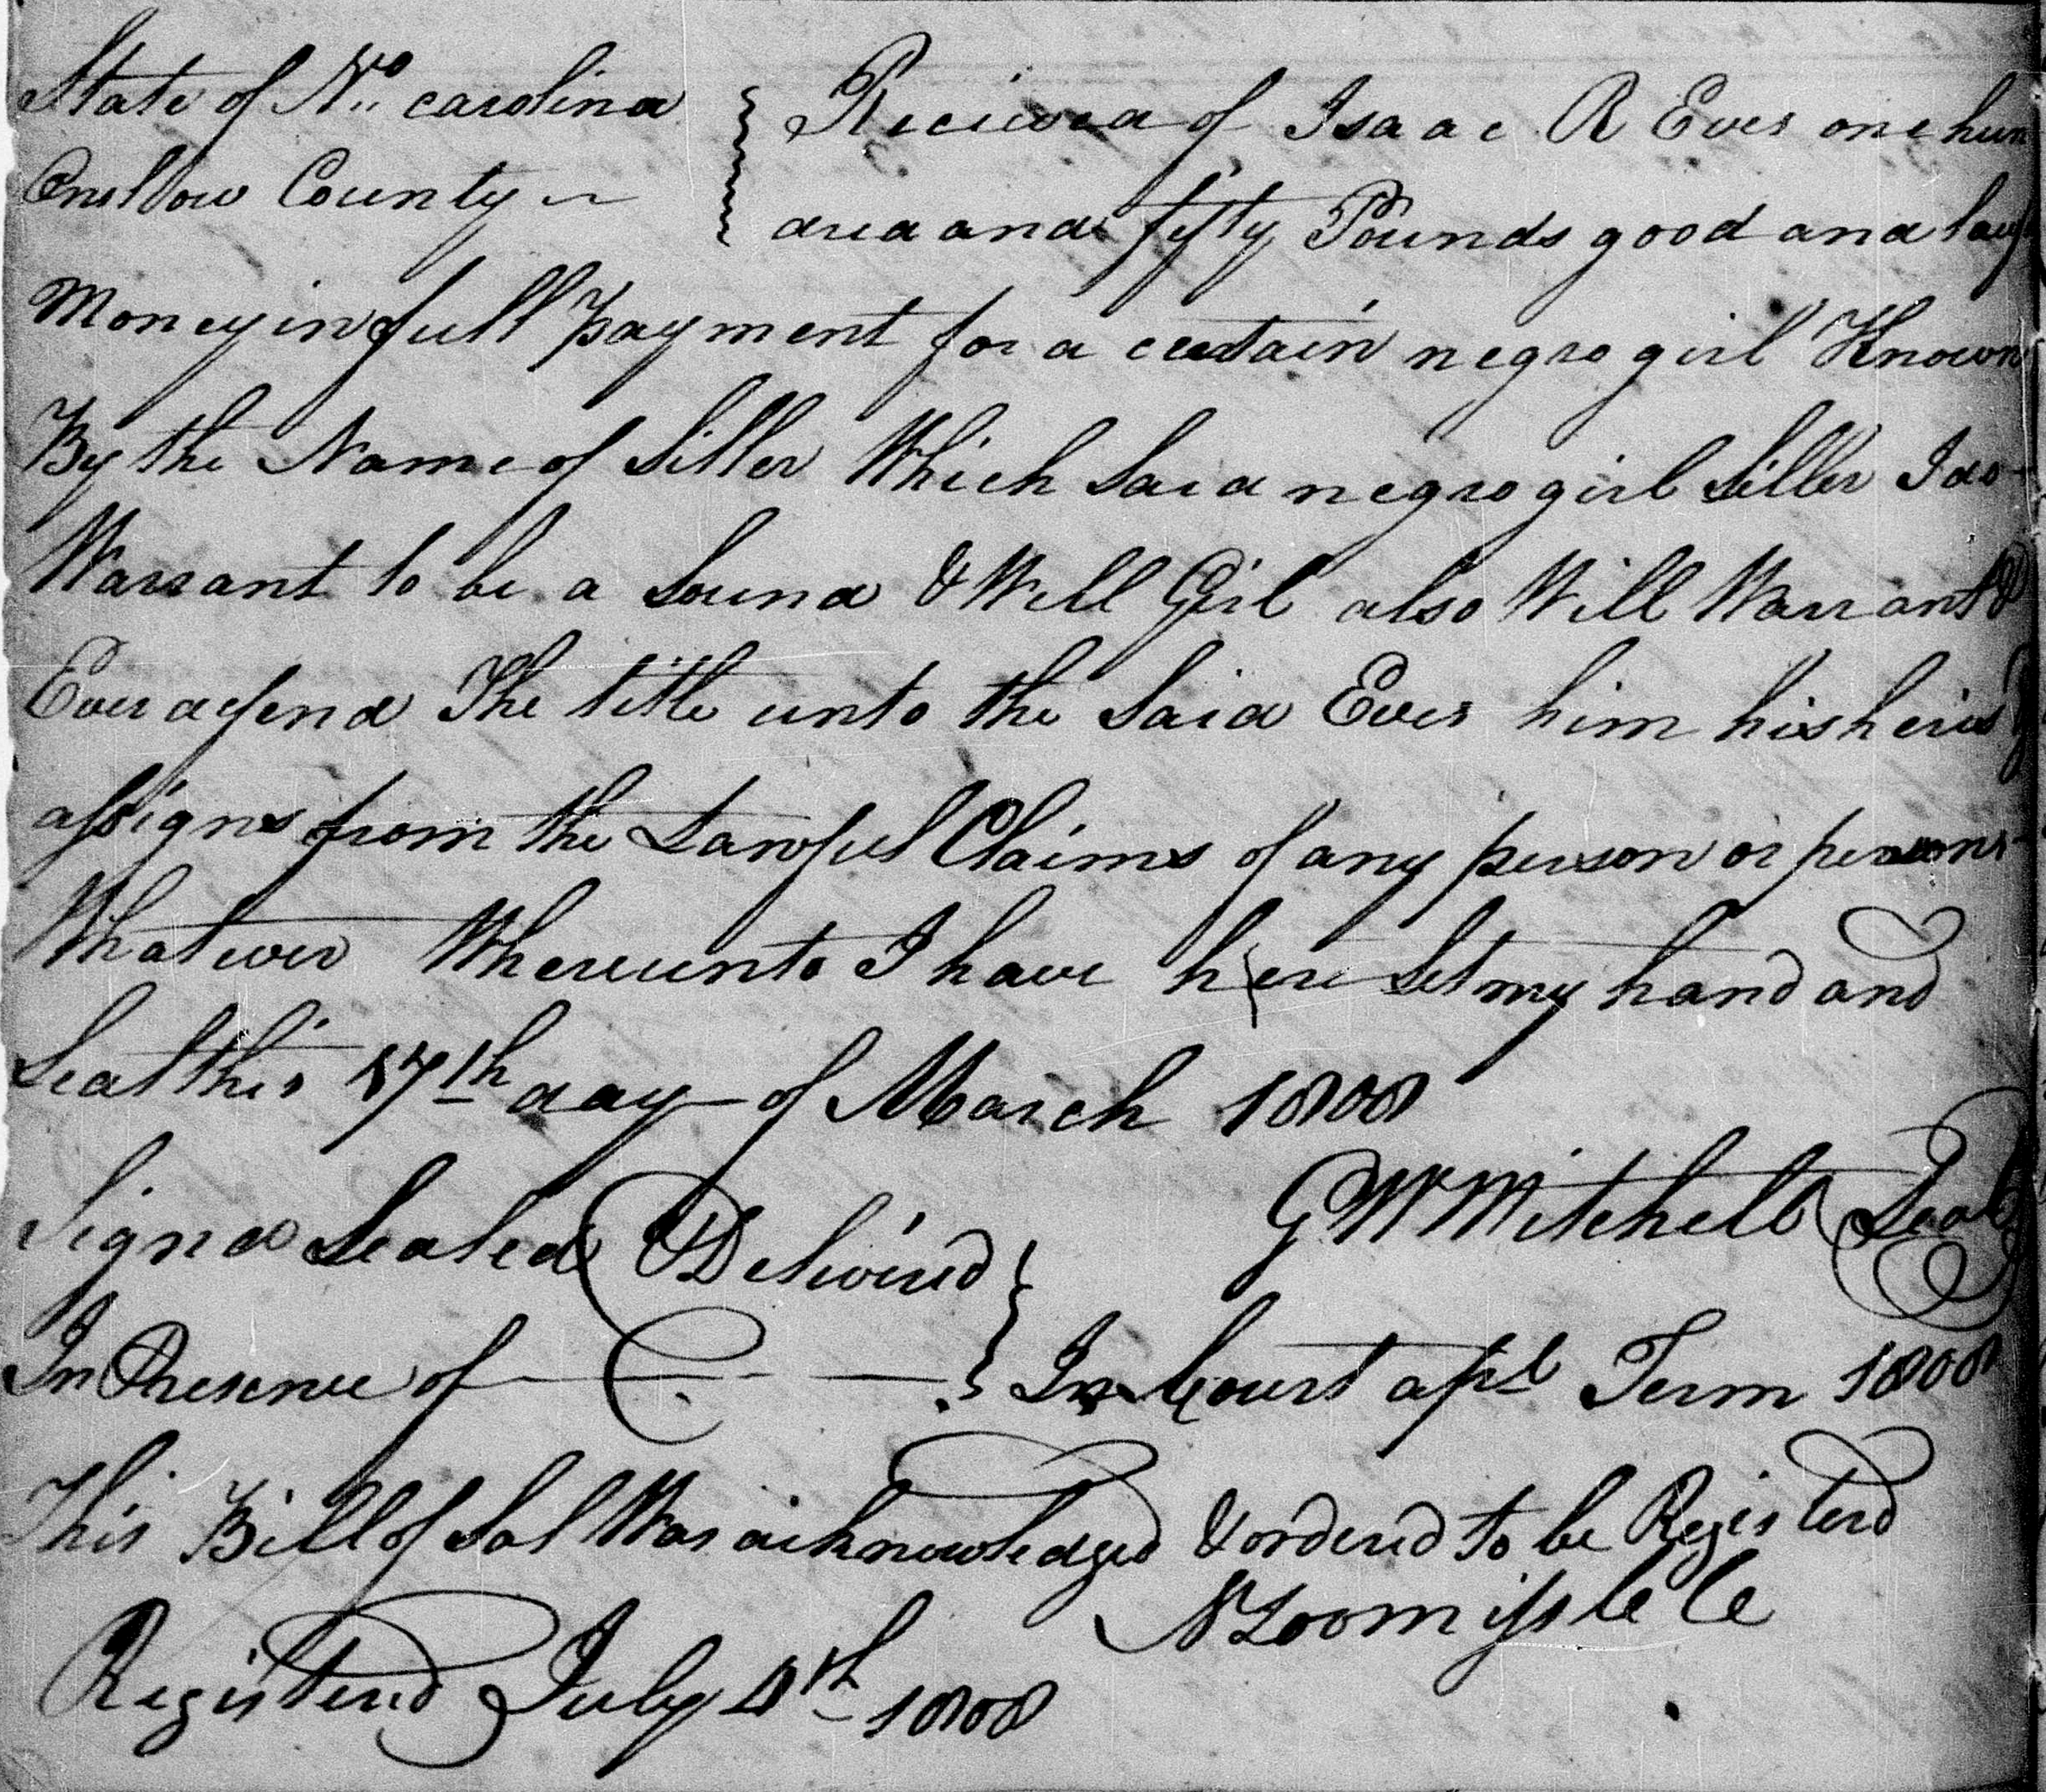 State of No carolina
Onslow County
Recieved of Isaac R Ever one hun
dred and fifty Pounds good and lawf
Money in full payment for a certain negro girl Known
By the Name of Siller Which Said negro girl Siller I do
Warrant to be a Sound & Well Girl also Will Warrant &
Ever defend The title unto the Said Ever him his heirs &
assigns from the Lawful Claims of any person or persons
Whatever Whereunto I have here Set my hand and
Seal this 17th day of March 1808
G W Mitchell Seal
Signed Sealed & Delivered
In Presence of
In Court apl Term 1808
This Bill of Sal Was acknowledged & orderd to be Registerd
N Loomiss
Registerd July 4th 1808